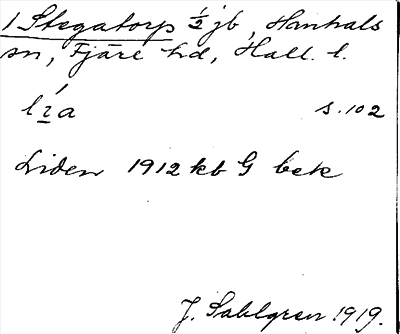 1 Stegatorp ½ jb, Hanhals
sn, Fjäre hd, Hall. l.
lía s. 102
Liden 1912 kb G bek
J. Sahlgren 1919.